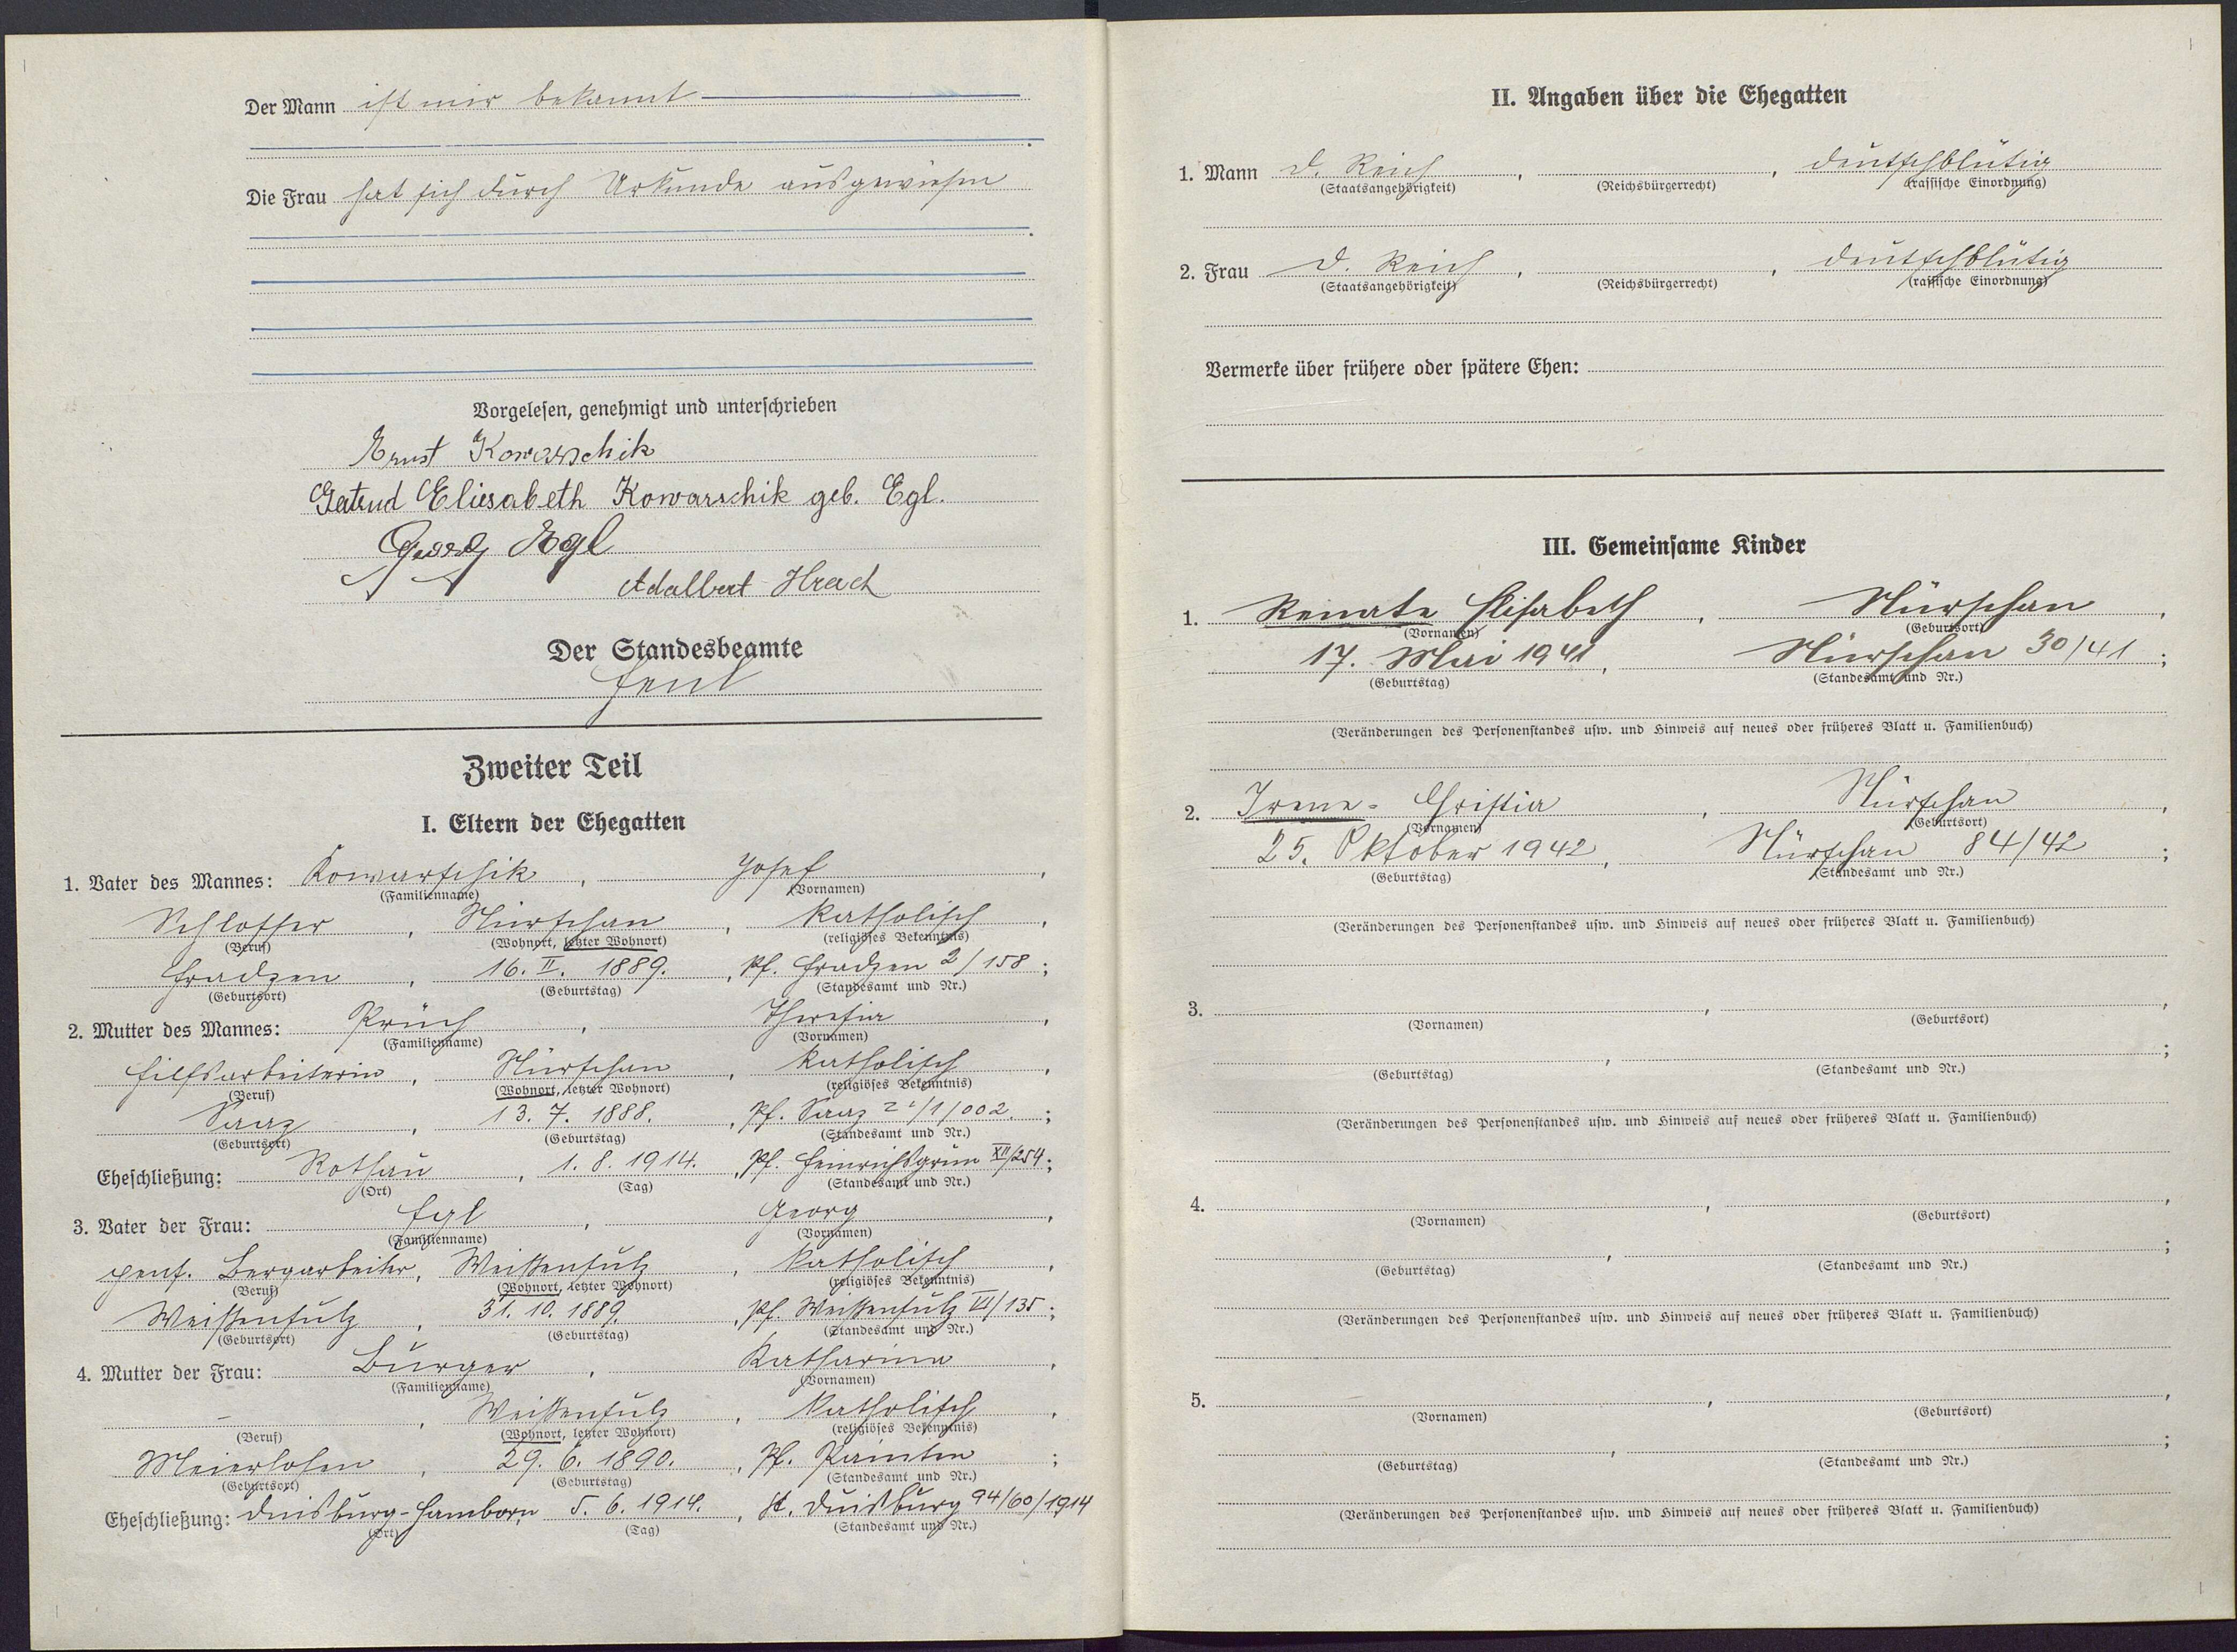 Der Mann ist mir bekannt
Die Frau hat sich durch Urkunde ausgewiesen
Vorgelesen, genehmigt und unterschrieben
Ernst Kowarschik
Gertrud Eliesabeth Kowarschik geb. Egl.
Georg Egl
Adalbert Hrach
Der Standesbeamte
Zweiter Teil
I. Eltern der Ehegatten
1. Vater des Mannes: Kowarschik, Josef,
(Familienname) (Vornamen)
Schlosser, Nürschan, katholisch,
(Beruf) (Wohnort, letzter Wohnort) (religiöses Bekenntnis)
Hradzen, 16. II. 1889., Pf. Hradzen 2/158;
(Geburtsort) (Geburtstag) (Standesamt und Nr.)
2. Mutter des Mannes: Prüch, Theresia,
(Familienname) (Vornamen)
Hilfsarbeiterin, Nürschan, katholisch,
(Beruf) (Wohnort, letzter Wohnort) (religiöses Bekenntnis)
Saaz, 13. 7. 1888., Pf. Saaz /1/002.;
(Geburtsort) (Geburtstag) (Standesamt und Nr.)
Eheschließung: Rothau, 1. 8. 1914., Pf. Heinrichsgrün XII/254;
(Ort) (Tag) (Standesamt und Nr.)
3. Vater der Frau: Egl, Georg,
(Familienname) (Vornamen)
pens. Bergarbeiter, Weißensulz, katholisch,
(Beruf) (Wohnort, letzter Wohnort) (religiöses Bekenntnis)
Weißensulz, 31. 10. 1889., Pf. Weißensulz VI/135;
(Geburtsort) (Geburtstag) (Standesamt und Nr.)
4. Mutter der Frau: Burger, Katharina,
(Familienname) (Vornamen)
–, Weißensulz, katholisch,
(Beruf) (Wohnort, letzter Wohnort) (religiöses Bekenntnis)
Meierhofen, 29. 6. 1890., Pf. Painten;
(Geburtsort) (Geburtstag) (Standesamt und Nr.)
Eheschließung: Duisburg-Hamborn, 5. 6. 1914., St. Duisburg 94/60/1914
(Ort) (Tag) (Standesamt und Nr.)
II. Angaben über die Ehegatten
1. Mann D. Reich, , deutschblütig
(Staatsangehörigkeit) (Reichsbürgerrecht) (rassische Einordnung)
2. Frau D. Reich, , deutschblütig
(Staatsangehörigkeit) (Reichsbürgerrecht) (rassische Einordnung)
Vermerke über frühere oder spätere Ehen:
III. Gemeinsame Kinder
1. Renate Elisabeth, Nürschan,
(Vornamen) (Geburtsort)
17. Mai 1941, Nürschan 30/41;
(Geburtstag) (Standesamt und Nr.)
(Veränderungen des Personenstandes usw. und Hinweis auf neues oder früheres Blatt u. Familienbuch)
2. Irene- Christia, Nürschan,
(Vornamen) (Geburtsort)
25. Oktober 1942, Nürschan 84/42;
(Geburtstag) (Standesamt und Nr.)
(Veränderungen des Personenstandes usw. und Hinweis auf neues oder früheres Blatt u. Familienbuch)
3. , ,
(Vornamen) (Geburtsort)
, ;
(Geburtstag) (Standesamt und Nr.)
(Veränderungen des Personenstandes usw. und Hinweis auf neues oder früheres Blatt u. Familienbuch)
4. , ,
(Vornamen) (Geburtsort)
, ;
(Geburtstag) (Standesamt und Nr.)
(Veränderungen des Personenstandes usw. und Hinweis auf neues oder früheres Blatt u. Familienbuch)
5. , ,
(Vornamen) (Geburtsort)
, ;
(Geburtstag) (Standesamt und Nr.)
(Veränderungen des Personenstandes usw. und Hinweis auf neues oder früheres Blatt u. Familienbuch)